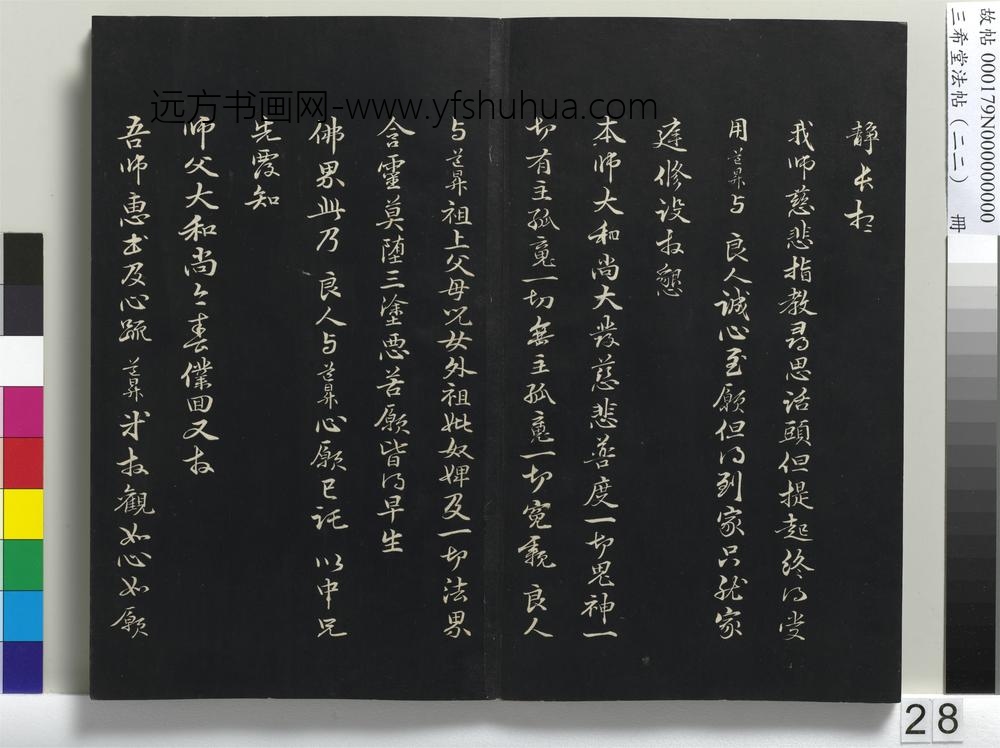 静长
我师慈悲指教尋思话頭但提起终得受
用道昇与 良人诚心至願但得到家只就家
建修设拜懇
本师大和尚大發慈悲普度一切鬼神一
切有主孤魂一切無主孤魂一切冤親 良人
与道昇祖上父母兒女外祖妣奴婢及一切法界
含靈莫堕三塗悪苦願皆得早生
佛界此乃 良人与道昇心願已託 以中兄
先覆知
师父大和尚今春僕回又拜
吾师惠书及心疏 道昇 拜觀如心如願
远方书画网-www.yfshuhua.com
故帖 000179N000000000
三希堂法帖（二二） 冊
28